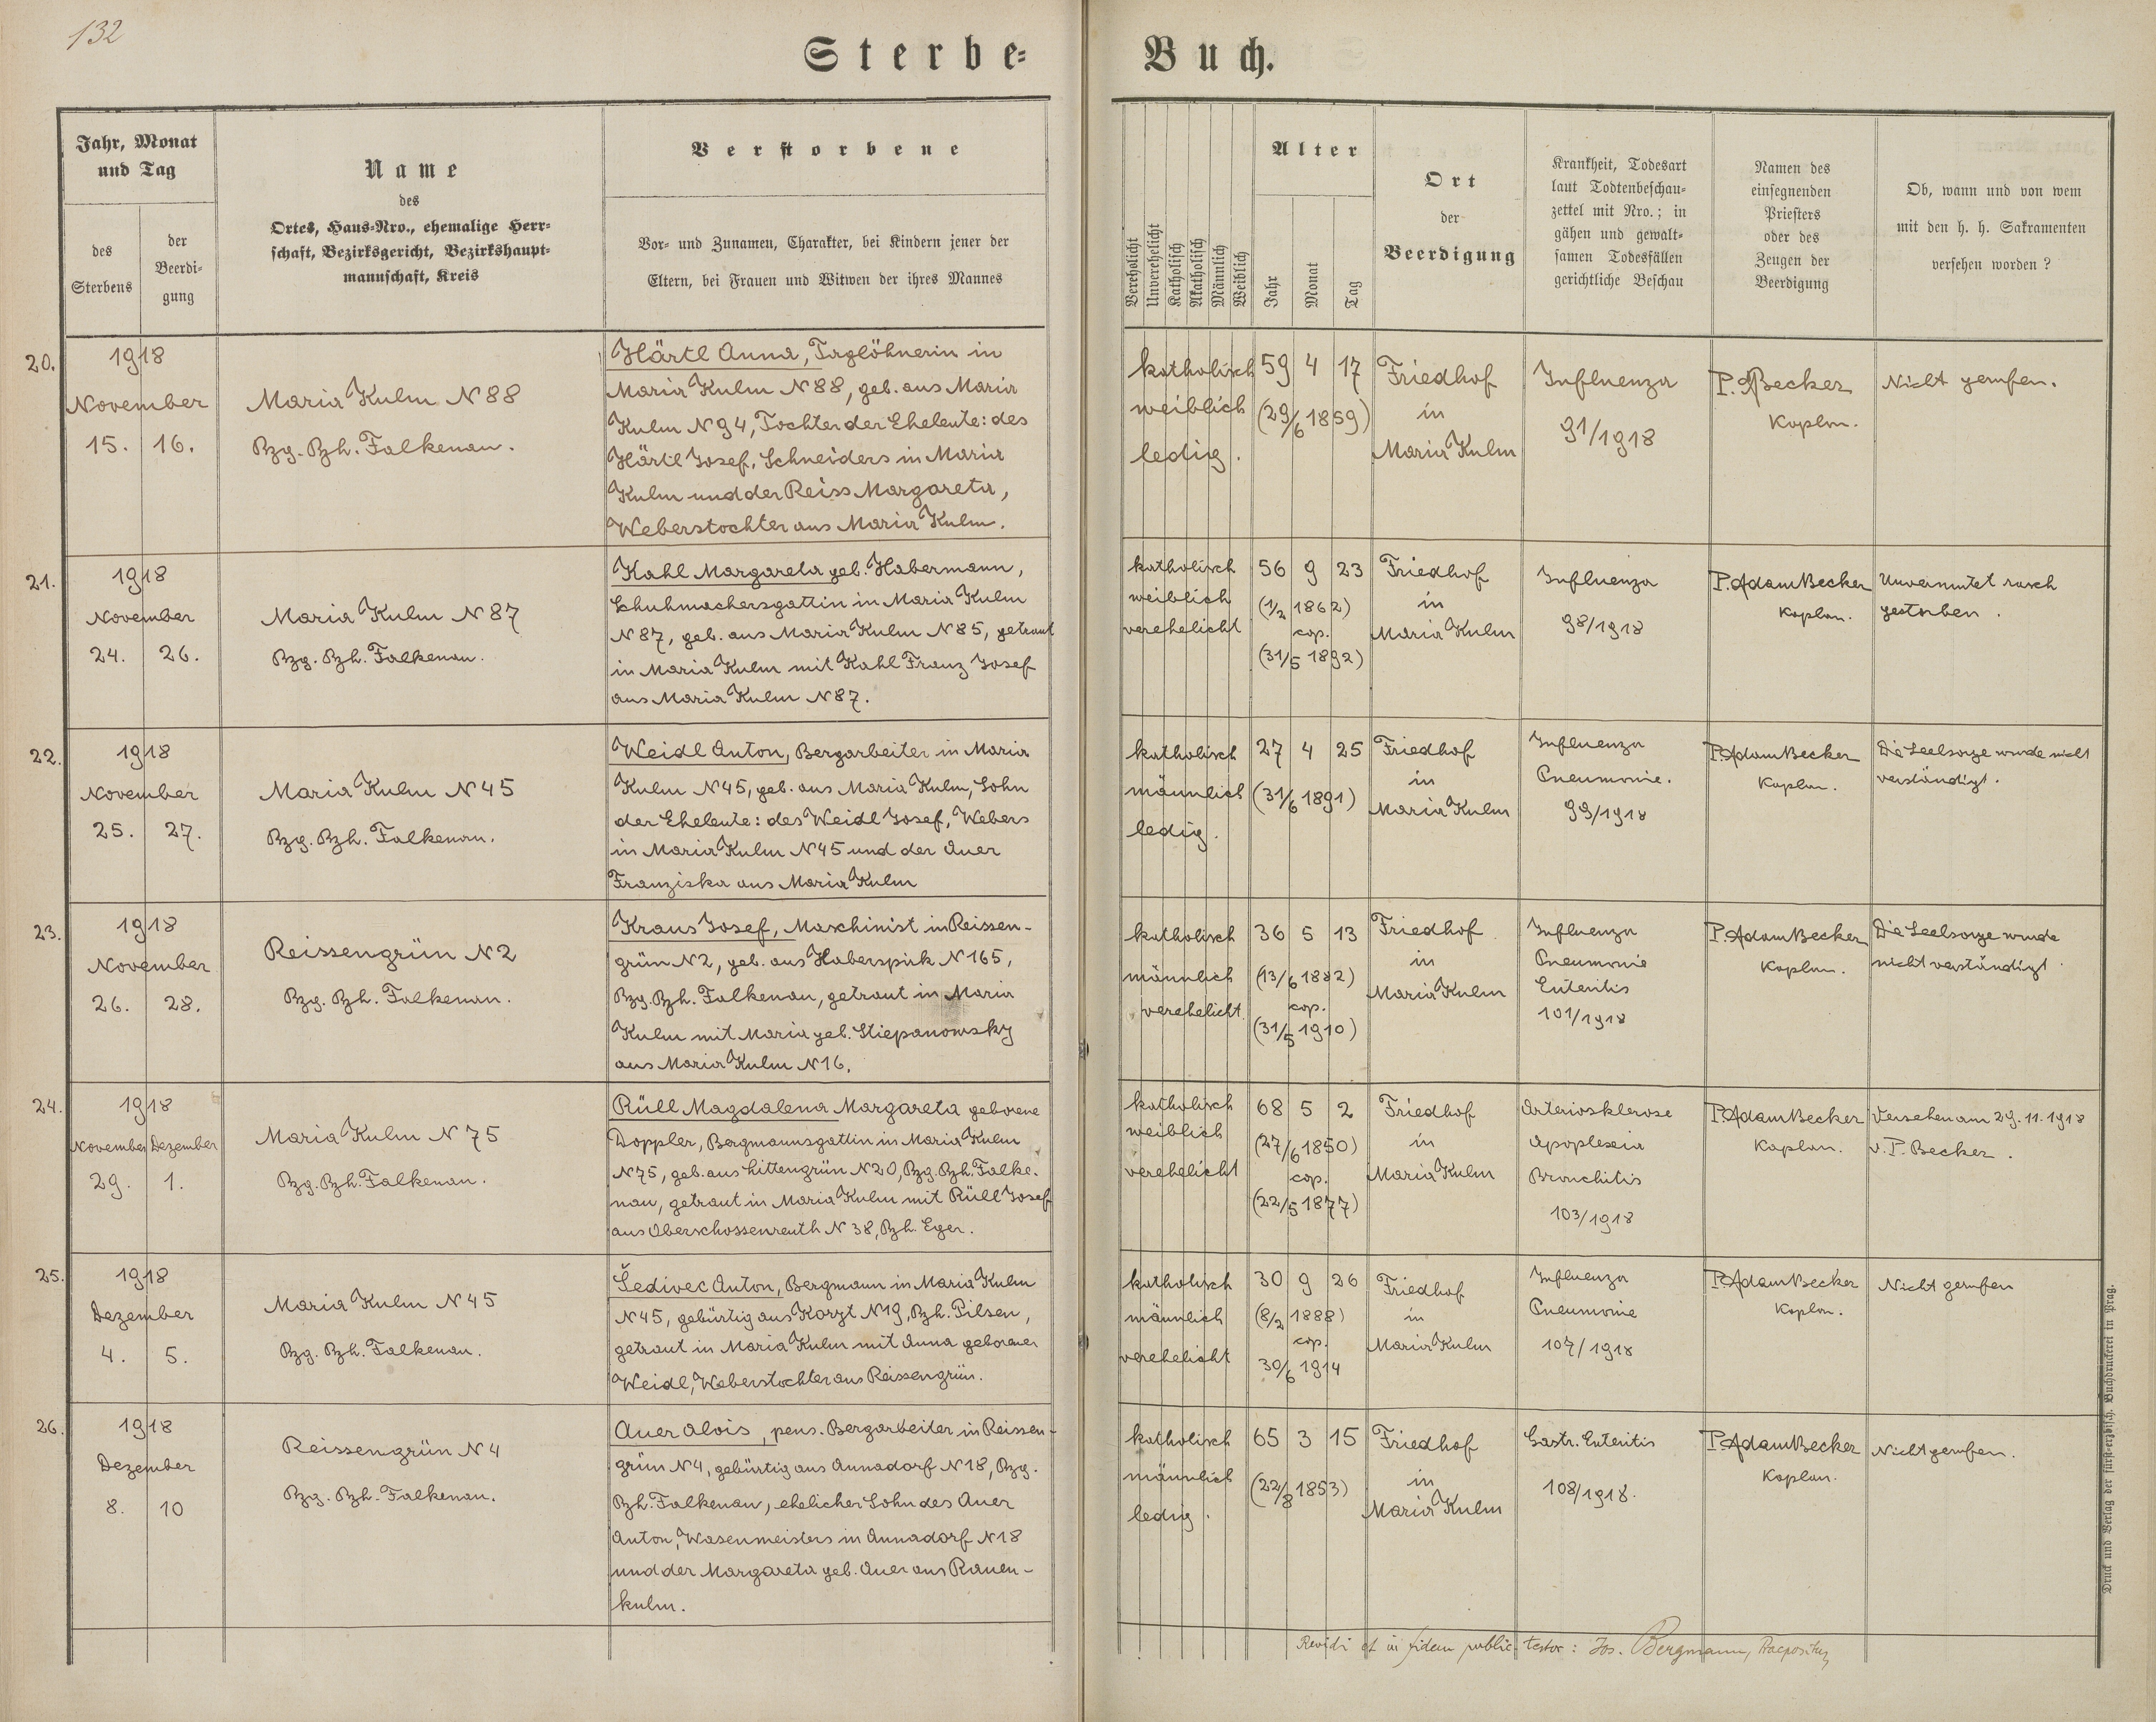 132
Sterbe=
Buch.
Jahr, Monat
und Tag
des
Sterbens
der
Beerdi-
gung
Name
des
Ortes, Haus-Nro., ehemalige Herr-
schaft, Bezirksgericht, Bezirkshaupt-
mannschaft, Kreis
Verstorbene
Vor- und Zunamen, Charakter, bei Kindern jener der
Eltern, bei Frauen und Witwen der ihres Mannes
Verehelicht
Unverehelicht
Katholisch
Akatholisch
Männlich
Weiblich
Alter
Jahr
Monat
Tag
Ort
der
Beerdigung
Krankheit, Todesart
laut Todtenbeschau-
zettel mit Nro.; in
gähen und gewalt-
samen Todesfällen
gerichtliche Beschau
Namen des
einsegnenden
Priesters
oder des
Zeugen der
Beerdigung
Ob, wann und von wem
mit den h. h. Sakramenten
versehen worden?
20.
1918
November
15. 16.
Maria Kulm N 88
Bzg. Bzh. Falkenau.
Härtl Anna, Taglöhnerin in
Maria Kulm N 88, geb. aus Maria
Kulm N 94, Tochter der Eheleute: des
Härtl Josef, Schneiders in Maria
Kulm und der Reiss Margareta,
Weberstochter aus Maria Kulm.
katholisch
weiblich
ledig.
59 4 17
(29/6 1859)
Friedhof
in
Maria Kulm
Influenza
91/1918
P. A Becker
Kaplan.
Nicht gerufen.
21.
1918
November
24. 26.
Maria Kulm N 87
Bzg. Bzh. Falkenau.
Kahl Margareta geb. Habermann,
Schuhmachersgattin in Maria Kulm
N 87, geb. aus Maria Kulm N 85, getraut
in Maria Kulm mit Kahl Franz Josef
aus Maria Kulm N 87.
katholisch
weiblich
verehelicht
56 9 23
(1/2 1862)
cop.
(31/5 1892)
Friedhof
in
Maria Kulm
Influenza
98/1918
P. Adam Becker
Kaplan.
Unvermutet rasch
gestorben.
22.
1918
November
25. 27.
Maria Kulm N 45
Bzg. Bzh. Falkenau.
Weidl Anton, Bergarbeiter in Maria
Kulm N 45, geb. aus Maria Kulm, Sohn
der Eheleute: des Weidl Josef, Webers
in Maria Kulm N 45 und der Auer
Franziska aus Maria Kulm
katholisch
männlich
ledig.
27 4 25
(31/6 1891)
Friedhof
in
Maria Kulm
Influenza
Pneumonie.
99/1918
P. Adam Becker
Kaplan.
Die Seelsorge wurde nicht
verständigt.
23.
1918
November
26. 28.
Reissengrün N 2
Bzg. Bzh. Falkenau.
Kraus Josef, Maschinist in Reissen-
grün N 2, geb. aus Haberspirk N 165,
Bzg. Bzh. Falkenau, getraut in Maria
Kulm mit Maria geb. Stiepanowsky
aus Maria Kulm N 16.
katholisch
männlich
verehelicht.
36 5 13
(13/6 1882)
cop.
(31/5 1910)
Friedhof
in
Maria Kulm
Influenza
Pneumonie
Enteritis
101/1918
P. Adam Becker
Kaplan.
Die Seelsorge wurde
nicht verständigt.
24.
1918
November Dezember
29. 1.
Maria Kulm N 75
Bzg. Bzh. Falkenau.
Rüll Magdalena Margareta geborene
Doppler, Bergmannsgattin in Maria Kulm
N 75, geb. aus Littengrün N 20, Bzg. Bzh. Falke.
nau, getraut in Maria Kulm mit Rüll Josef
aus Oberschossenreuth N 38, Bzh. Eger.
katholisch
weiblich
verehelicht
68 5 2
(27/6 1850)
cop.
(22/5 1877)
Friedhof
in
Maria Kulm
Arteriosklerose
Apoplexia
Bronchitis
103/1918
P. Adam Becker
Kaplan.
Versehen am 29. 11. 1918
v. P. Becker.
25.
1918
Dezember
4. 5.
Maria Kulm N 45
Bzg. Bzh. Falkenau.
Šedivec Anton, Bergmann in Maria Kulm
N 45, gebürtig aus Korzt N 19, Bzh. Pilsen,
getraut in Maria Kulm mit Anna geborener
Weidl, Weberstochter aus Reissengrün.
katholisch
männlich
verehelicht
30 9 26
(8/2 1888)
cop.
30/6 1914
Friedhof
in
Maria Kulm
Influenza
Pneumonie
107/1918
P. Adam Becker
Kaplan.
Nicht gerufen
26.
1918
Dezember
8. 10
Reissengrün N 4
Bzg. Bzh. Falkenau.
Auer Alois, pens. Bergarbeiter in Reissen-
grün N 4, gebürtig aus Annadorf N 18, Bzg.
Bzh. Falkenau, ehelicher Sohn des Auer
Anton, Wasenmeisters in Annadorf N 18
und der Margareta geb. Auer aus Rauen-
kulm.
katholisch
männlich
ledig.
65 3 15
(22/8 1853)
Friedhof
in
Maria Kulm
Gastr. Enteritis
108/1918.
P. Adam Becker
Kaplan.
Nicht gerufen.
Revidi et in fidem public. testor: Jos. Bergmann, Praepositus
Druck und Verlag der fürst-erzbisch. Buchdruckerei in Prag.